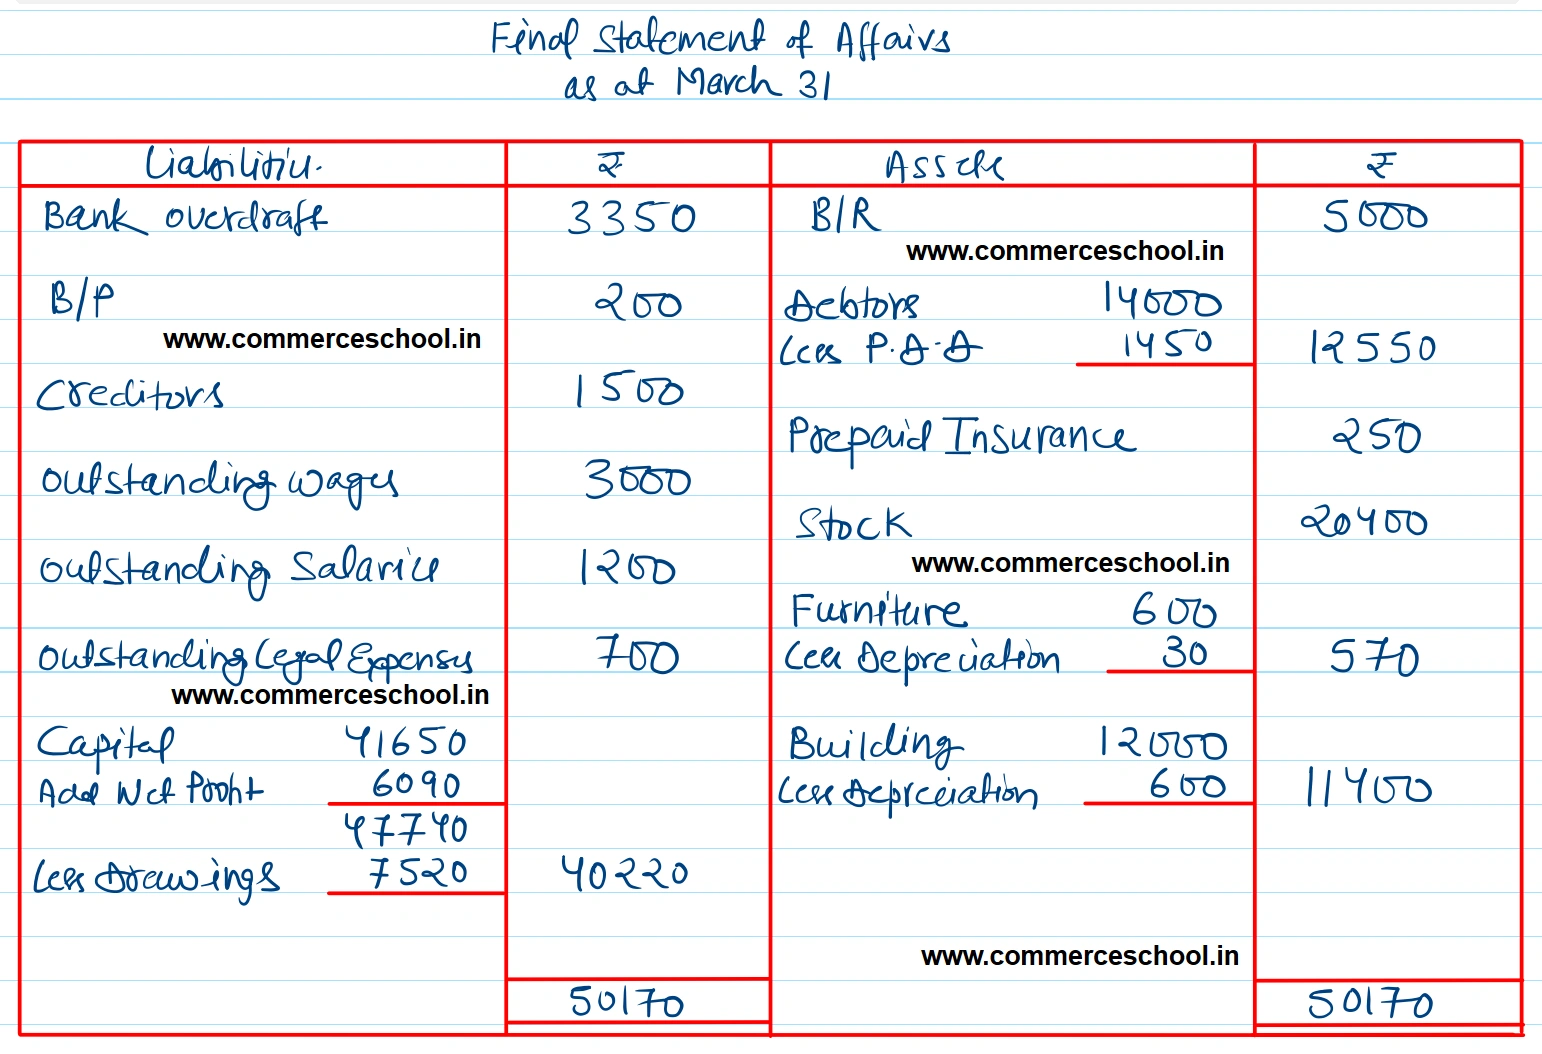 Final Statement of Affairs
as at March 31
Liabilities. ₹ Assets ₹
Bank overdraft 3350 B/R 5000
www.commerceschool.in
B/P 200 Debtors 14000
www.commerceschool.in Less P.D.D 1450 12550
Creditors 1500
Prepaid Insurance 250
outstanding wages 3000
Stock 20400
outstanding Salaries 1200 www.commerceschool.in
Furniture 600
outstanding Legal Expenses 700 Less Depreciation 30 570
www.commerceschool.in
Capital 41650 Building 12000
Add Net Profit 6090 Less Depreciation 600 11400
47740
Less Drawings 7520 40220
www.commerceschool.in
50170 50170